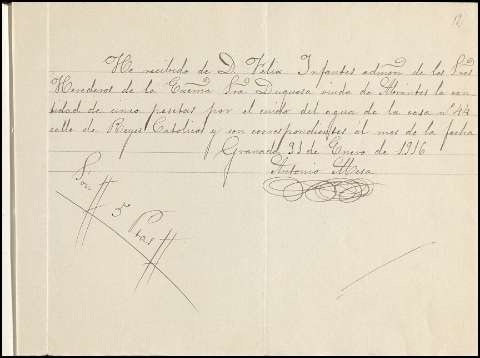 12
He recibido de D. Felix Infantes admón de los Sres
Herederos de la Excma Sra Duquesa viuda de Abrantes la can
tidad de cinco pesetas por el cuido del agua de la casa nº 44
calle de Reyes Católicos y son correspondientes al mes de la fecha
Granada 31 de Enero de 1916
Antonio Mesa
Son
# 5 Ptas #